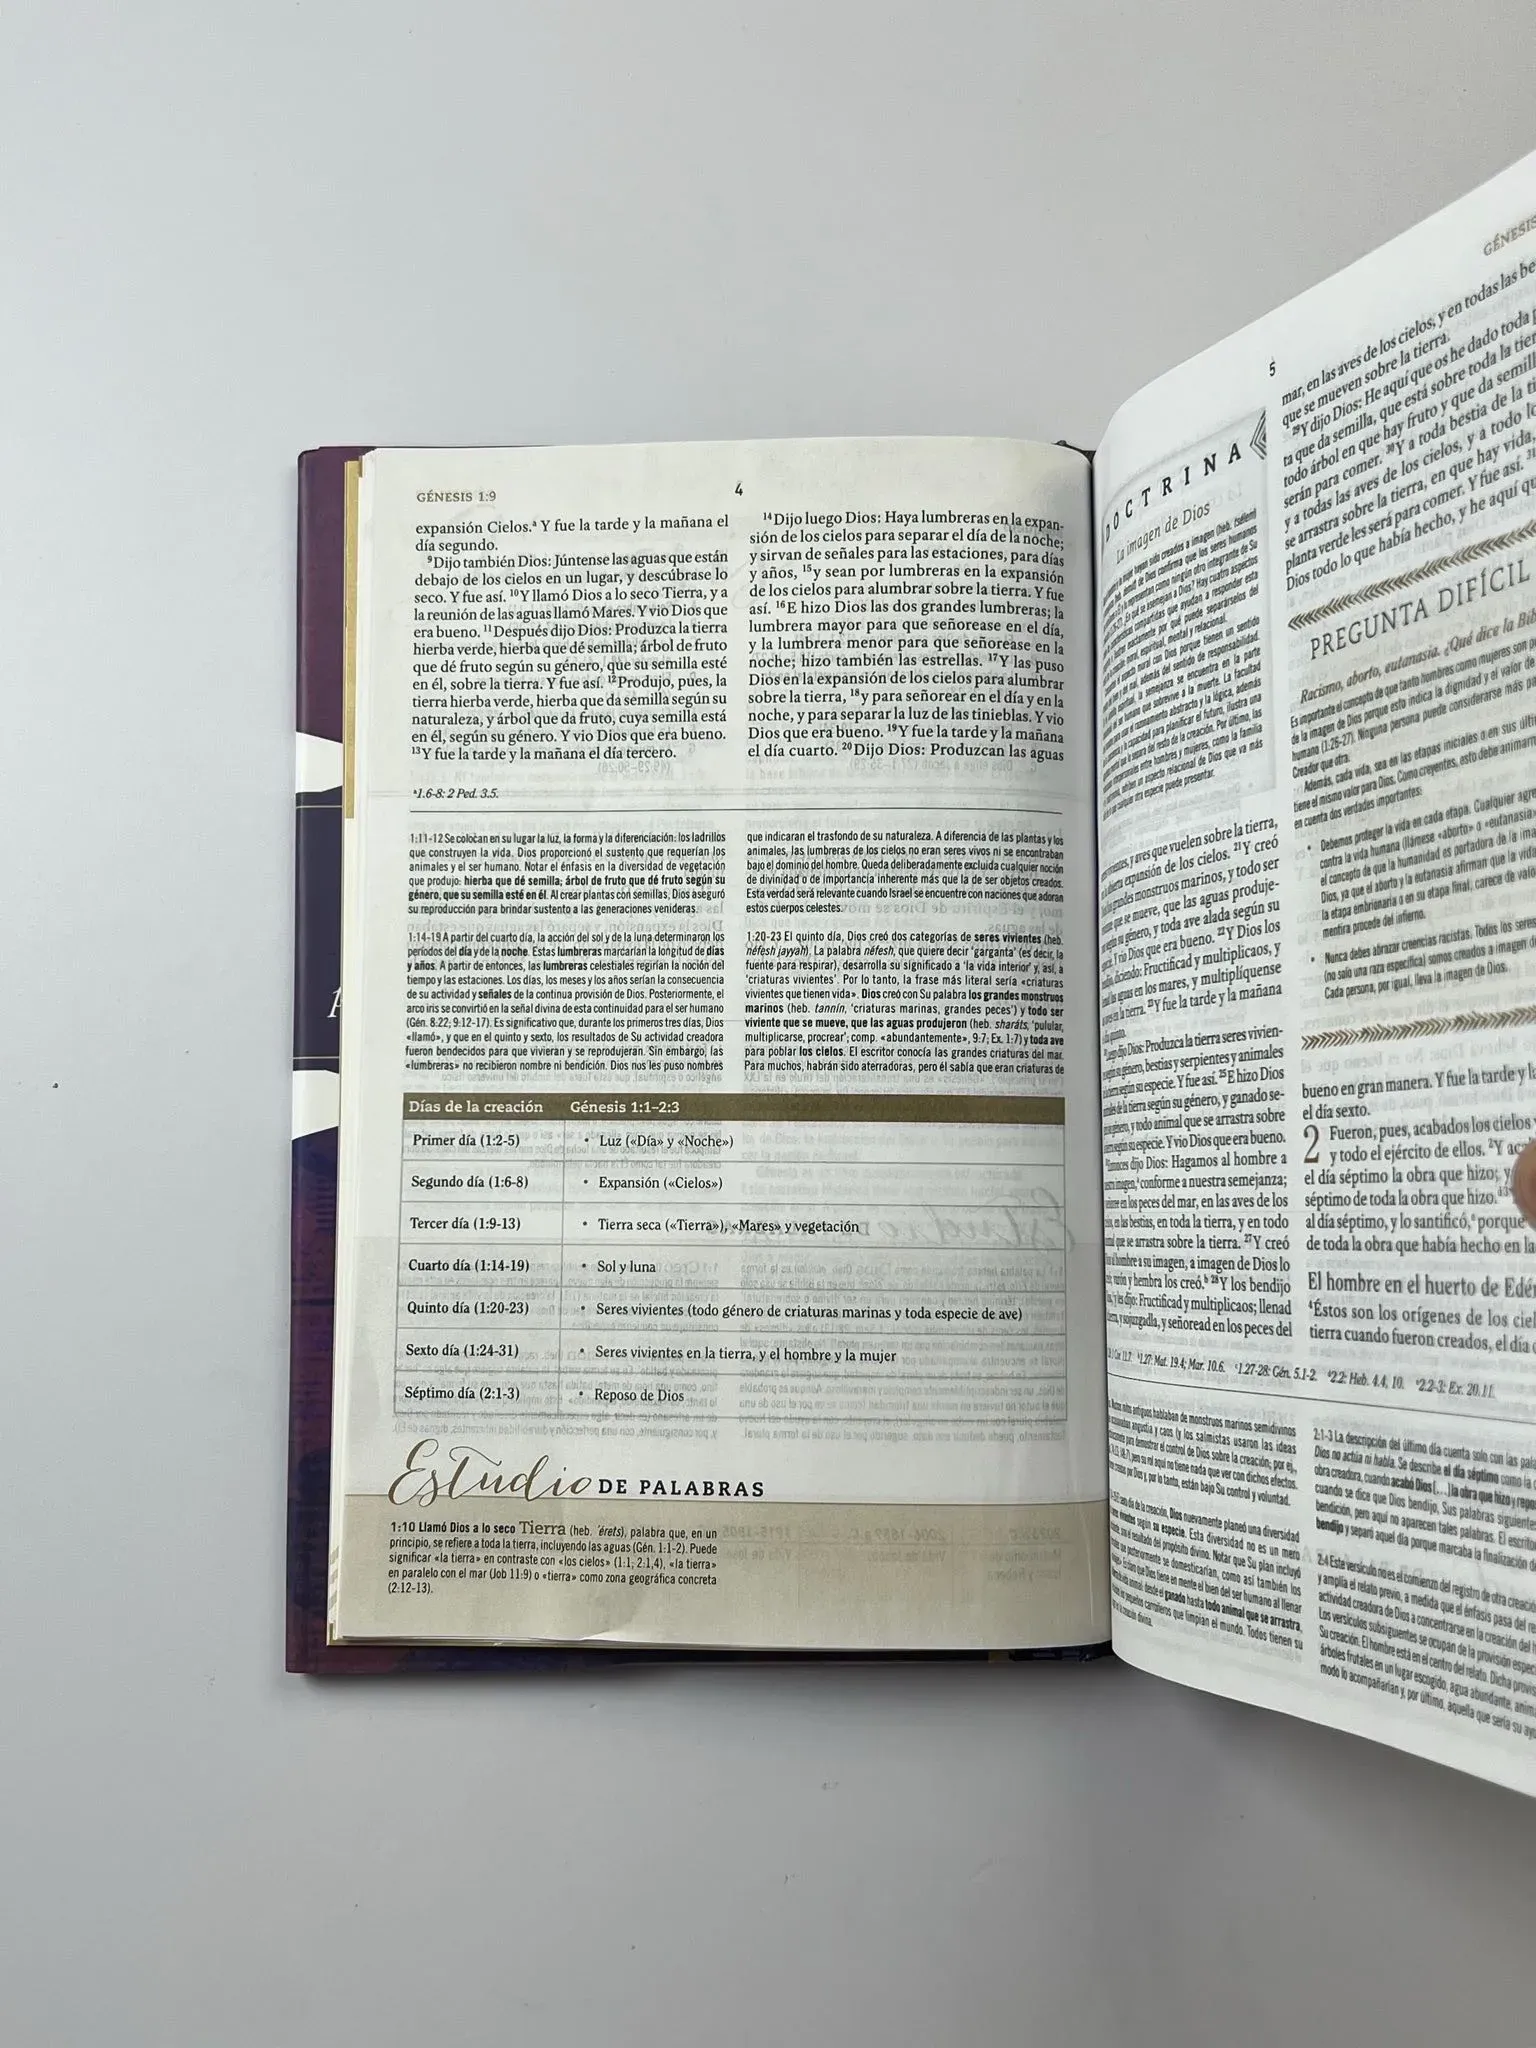 GÉNESIS 1:9
4
expansión Cielos.ª Y fue la tarde y la mañana el
día segundo.
9Dijo también Dios: Júntense las aguas que están
debajo de los cielos en un lugar, y descúbrase lo
seco. Y fue así. 10Y llamó Dios a lo seco Tierra, y a
la reunión de las aguas llamó Mares. Y vio Dios que
era bueno. 11Después dijo Dios: Produzca la tierra
hierba verde, hierba que dé semilla; árbol de fruto
que dé fruto según su género, que su semilla esté
en él, sobre la tierra. Y fue así. 12Produjo, pues, la
tierra hierba verde, hierba que da semilla según su
naturaleza, y árbol que da fruto, cuya semilla está
en él, según su género. Y vio Dios que era bueno.
13Y fue la tarde y la mañana el día tercero.
14Dijo luego Dios: Haya lumbreras en la expan-
sión de los cielos para separar el día de la noche;
y sirvan de señales para las estaciones, para días
y años, 15y sean por lumbreras en la expansión
de los cielos para alumbrar sobre la tierra. Y fue
así. 16E hizo Dios las dos grandes lumbreras; la
lumbrera mayor para que señorease en el día,
y la lumbrera menor para que señorease en la
noche; hizo también las estrellas. 17Y las puso
Dios en la expansión de los cielos para alumbrar
sobre la tierra, 18y para señorear en el día y en la
noche, y para separar la luz de las tinieblas. Y vio
Dios que era bueno. 19Y fue la tarde y la mañana
el día cuarto. 20Dijo Dios: Produzcan las aguas
ª1.6-8: 2 Ped. 3.5.
1:11-12 Se colocan en su lugar la luz, la forma y la diferenciación: los ladrillos
que construyen la vida. Dios proporcionó el sustento que requerían los
animales y el ser humano. Notar el énfasis en la diversidad de vegetación
que produjo: hierba que dé semilla; árbol de fruto que dé fruto según su
género, que su semilla esté en él. Al crear plantas con semillas, Dios aseguró
su reproducción para brindar sustento a las generaciones venideras.
1:14-19 A partir del cuarto día, la acción del sol y de la luna determinaron los
períodos del día y de la noche. Estas lumbreras marcarían la longitud de días
y años. A partir de entonces, las lumbreras celestiales regirían la noción del
tiempo y las estaciones. Los días, los meses y los años serían la consecuencia
de su actividad y señales de la continua provisión de Dios. Posteriormente, el
arco iris se convirtió en la señal divina de esta continuidad para el ser humano
(Gén. 8:22; 9:12-17). Es significativo que, durante los primeros tres días, Dios
«llamó», y que en el quinto y sexto, los resultados de Su actividad creadora
fueron bendecidos para que vivieran y se reprodujeran. Sin embargo, las
«lumbreras» no recibieron nombre ni bendición. Dios nos les puso nombres
que indicaran el trasfondo de su naturaleza. A diferencia de las plantas y los
animales, las lumbreras de los cielos no eran seres vivos ni se encontraban
bajo el dominio del hombre. Queda deliberadamente excluida cualquier noción
de divinidad o de importancia inherente más que la de ser objetos creados.
Esta verdad será relevante cuando Israel se encuentre con naciones que adoran
estos cuerpos celestes.
1:20-23 El quinto día, Dios creó dos categorías de seres vivientes (heb.
néfesh jayyah). La palabra néfesh, que quiere decir 'garganta' (es decir, la
fuente para respirar), desarrolla su significado a 'la vida interior' y, así, a
'criaturas vivientes'. Por lo tanto, la frase más literal sería «criaturas
vivientes que tienen vida». Dios creó con Su palabra los grandes monstruos
marinos (heb. tannín, 'criaturas marinas, grandes peces') y todo ser
viviente que se mueve, que las aguas produjeron (heb. sharáts, 'pulular,
multiplicarse, procrear'; comp. «abundantemente», 9:7; Ex. 1:7) y toda ave
para poblar los cielos. El escritor conocía las grandes criaturas del mar.
Para muchos, habrán sido aterradoras, pero él sabía que eran criaturas de
Días de la creación Génesis 1:1–2:3
Primer día (1:2-5) • Luz («Día» y «Noche»)
Segundo día (1:6-8) • Expansión («Cielos»)
Tercer día (1:9-13) • Tierra seca («Tierra»), «Mares» y vegetación
Cuarto día (1:14-19) • Sol y luna
Quinto día (1:20-23) • Seres vivientes (todo género de criaturas marinas y toda especie de ave)
Sexto día (1:24-31) • Seres vivientes en la tierra, y el hombre y la mujer
Séptimo día (2:1-3) • Reposo de Dios
Estudio DE PALABRAS
1:10 Llamó Dios a lo seco Tierra (heb. 'érets), palabra que, en un
principio, se refiere a toda la tierra, incluyendo las aguas (Gén. 1:1-2). Puede
significar «la tierra» en contraste con «los cielos» (1:1; 2:1,4), «la tierra»
en paralelo con el mar (Job 11:9) o «tierra» como zona geográfica concreta
(2:12-13).
5
GÉNESIS
DOCTRINA
La imagen de Dios
mar, en las aves de los cielos, y en todas las
que se mueven sobre la tierra.
29Y dijo Dios: He aquí que os he dado toda
ta que da semilla, que está sobre toda la
todo árbol en que hay fruto y que da
serán para comer. 30Y a toda bestia de la
y a todas las aves de los cielos, y a todo
se arrastra sobre la tierra, en que hay vida,
planta verde les será para comer. Y fue así. 31
Dios todo lo que había hecho, y he aquí
PREGUNTA DIFÍCIL
Racismo, aborto, eutanasia. ¿Qué dice la
Es importante el concepto de que tanto hombres como mujeres son
de la imagen de Dios porque esto indica la dignidad y el valor de
humana (1:26-27). Ninguna persona puede considerarse más
Creador que otra.
Además, cada vida, sea en las etapas iniciales o en sus
tiene el mismo valor para Dios. Como creyentes, esto debe
en cuenta dos verdades importantes:
• Debemos proteger la vida en cada etapa. Cualquier
contra la vida humana (llámese «aborto» o «eutanasia
el concepto de que la humanidad es portadora de la
Dios, ya que el aborto y la eutanasia afirman que la
la etapa embrionaria o en su etapa final, carece de
mentira procede del infierno.
• Nunca debes abrazar creencias racistas. Todos los
(no solo una raza específica) somos creados a imagen
Cada persona, por igual, lleva la imagen de Dios.
vuelen sobre la tierra,
expansión de los cielos. 21Y creó
grandes monstruos marinos, y todo ser
que se mueve, que las aguas produje-
y toda ave alada según su
Y vio Dios que era bueno. 22Y Dios los
diciendo: Fructificad y multiplicaos, y
las aguas en los mares, y multiplíquense
en la tierra. 23Y fue la tarde y la mañana
dijo Dios: Produzca la tierra seres vivien-
según su género, bestias y serpientes y animales
según su especie. Y fue así. 25E hizo Dios
de la tierra según su género, y ganado se-
género, y todo animal que se arrastra sobre
según su especie. Y vio Dios que era bueno.
dijo Dios: Hagamos al hombre a
imagen, conforme a nuestra semejanza;
en los peces del mar, en las aves de los
en las bestias, en toda la tierra, y en todo
que se arrastra sobre la tierra. 27Y creó
al hombre a su imagen, a imagen de Dios lo
varón y hembra los creó. 28Y los bendijo
y les dijo: Fructificad y multiplicaos; llenad
y sojuzgadla, y señoread en los peces del
bueno en gran manera. Y fue la tarde y la
el día sexto.
2 Fueron, pues, acabados los cielos
y todo el ejército de ellos. 2Y
el día séptimo la obra que hizo; y
séptimo de toda la obra que hizo.
al día séptimo, y lo santificó, porque
de toda la obra que había hecho en la
El hombre en el huerto de Edén
4Éstos son los orígenes de los
tierra cuando fueron creados, el día
1.27: Mat. 19.4; Mar. 10.6. 1.27-28: Gén. 5.1-2. 2.2: Heb. 4.4, 10. 2.2-3: Ex. 20.11.
2:1-3 La descripción del último día cuenta solo con las
Dios no actúa ni habla. Se describe el día séptimo como
obra creadora, cuando acabó Dios [...] la obra que hizo y
cuando se dice que Dios bendijo, Sus palabras
bendición, pero aquí no aparecen tales palabras. El
bendijo y separó aquel día porque marcaba la finalización
2:4 Este versículo no es el comienzo del registro de otra
y amplía el relato previo, a medida que el énfasis pasa del
actividad creadora de Dios a concentrarse en la creación del
Los versículos subsiguientes se ocupan de la provisión
Su creación. El hombre está en el centro del relato. Dicha
árboles frutales en un lugar escogido, agua abundante,
modo lo acompañarían y, por último, aquella que sería su